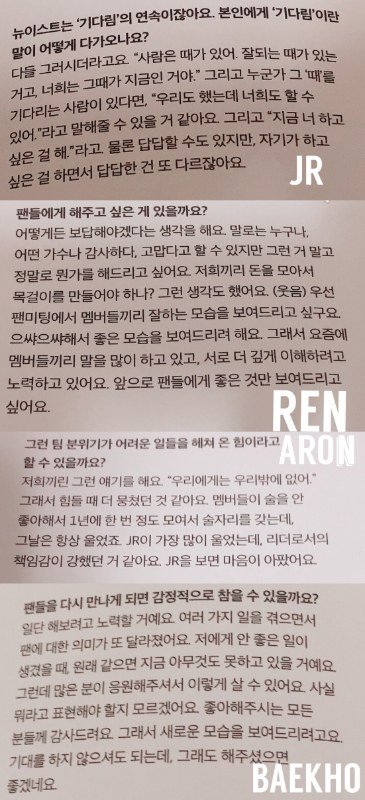 뉴이스트는 ‘기다림’의 연속이잖아요. 본인에게 ‘기다림’이란
말이 어떻게 다가오나요?
다들 그러시더라고요. “사람은 때가 있어. 잘되는 때가 있는
거고, 너희는 그때가 지금인 거야.” 그리고 누군가 그 ‘때’를
기다리는 사람이 있다면, “우리도 했는데 너희도 할 수
있어.”라고 말해줄 수 있을 거 같아요. 그리고 “지금 너 하고
싶은 걸 해.”라고. 물론 답답할 수도 있지만, 자기가 하고
싶은 걸 하면서 답답한 건 또 다르잖아요.
JR
팬들에게 해주고 싶은 게 있을까요?
어떻게든 보답해야겠다는 생각을 해요. 말로는 누구나,
어떤 가수나 감사하다, 고맙다고 할 수 있지만 그런 거 말고
정말로 뭔가를 해드리고 싶어요. 저희끼리 돈을 모아서
목걸이를 만들어야 하나? 그런 생각도 했어요. (웃음) 우선
팬미팅에서 멤버들끼리 잘하는 모습을 보여드리고 싶구요.
으쌰으쌰해서 좋은 모습을 보여드리려 해요. 그래서 요즘에
멤버들끼리 말을 많이 하고 있고, 서로 더 깊게 이해하려고
노력하고 있어요. 앞으로 팬들에게 좋은 것만 보여드리고
싶어요.
REN
ARON
그런 팀 분위기가 어려운 일들을 헤쳐 온 힘이라고
할 수 있을까요?
저희끼린 그런 얘기를 해요. “우리에게는 우리밖에 없어.”
그래서 힘들 때 더 뭉쳤던 것 같아요. 멤버들이 술을 안
좋아해서 1년에 한 번 정도 모여서 술자리를 갖는데,
그날은 항상 울었죠. JR이 가장 많이 울었는데, 리더로서의
책임감이 강했던 거 같아요. JR을 보면 마음이 아팠어요.
팬들을 다시 만나게 되면 감정적으로 참을 수 있을까요?
일단 해보려고 노력할 거예요. 여러 가지 일을 겪으면서
팬에 대한 의미가 또 달라졌어요. 저에게 안 좋은 일이
생겼을 때, 원래 같으면 지금 아무것도 못하고 있을 거예요.
그런데 많은 분이 응원해주셔서 이렇게 살 수 있어요. 사실
뭐라고 표현해야 할지 모르겠어요. 좋아해주시는 모든
분들께 감사드려요. 그래서 새로운 모습을 보여드리려고요.
기대를 하지 않으셔도 되는데, 그래도 해주셨으면
좋겠네요.
BAEKHO